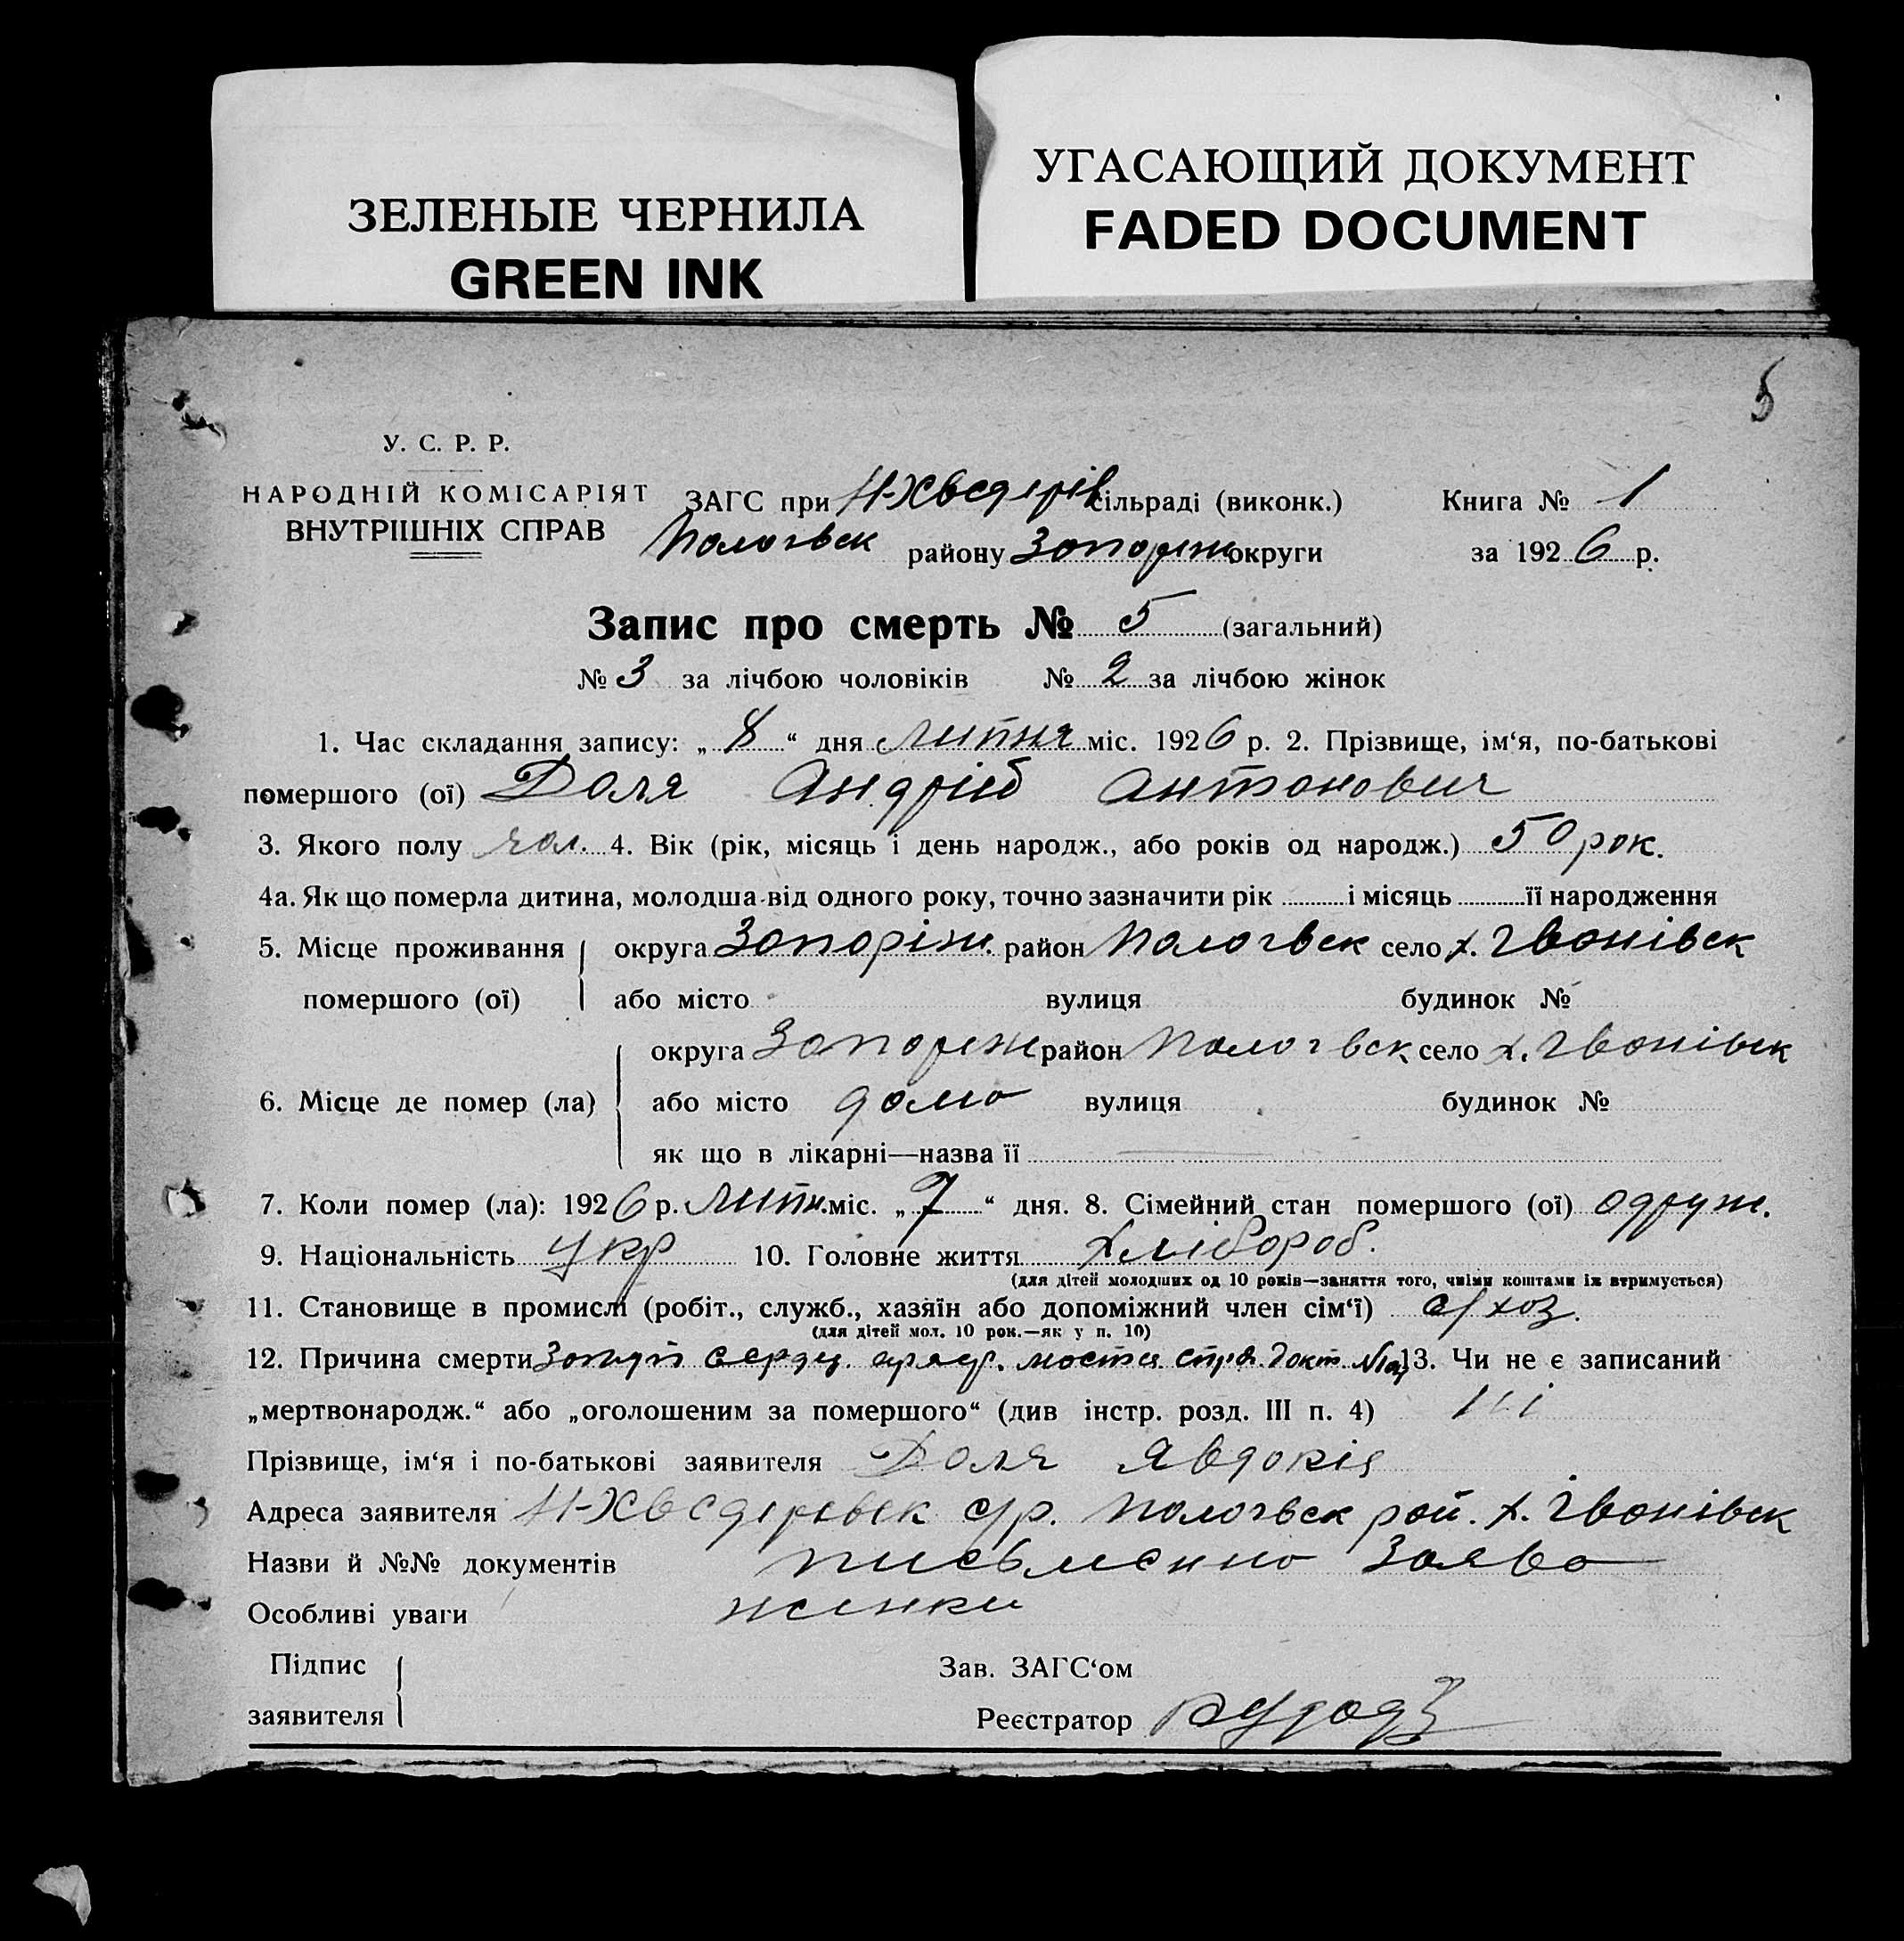 ЗЕЛЕНЫЕ ЧЕРНИЛА
GREEN INK
УГАСАЮЩИЙ ДОКУМЕНТ
FADED DOCUMENT
5
У. С. Р. Р.
НАРОДНІЙ КОМІСАРІЯТ
ВНУТРІШНІХ СПРАВ
ЗАГС при Н-Хведерів сільраді (виконк.) Книга № 1
Пологвск району Запориж округи за 1926 р.
Запис про смерть № 5 (загальний)
№ 3 за лічбою чоловіків № 2 за лічбою жінок
1. Час складання запису: „ 8 “ дня липня міс. 1926 р. 2. Прізвище, ім‘я, по-батькові
помершого (ої) Доля Андрій Антонович
3. Якого полу чол. 4. Вік (рік, місяць і день народж., або років од народж.) 50 рок.
4а. Як що померла дитина, молодша від одного року, точно зазначити рік і місяць її народження
5. Місце проживання округа Запоріж. район Пологвск село х. Гвонівск
помершого (ої) або місто вулиця будинок №
округа Запориж район Пологвск село х. Гвонівск
6. Місце де помер (ла) або місто дома вулиця будинок №
як що в лікарні—назва її
7. Коли помер (ла): 1926 р. липн. міс. „ 7 “ дня. 8. Сімейний стан помершого (ої) одруж.
9. Національність Укр 10. Головне життя Хлібороб.
(для дітей молодших од 10 років—заняття того, чиїми коштами їх втримується)
11. Становище в промислі (робіт., служб., хазяїн або допоміжний член сім‘ї) с/хоз.
(для дітей мол. 10 рок.—як у п. 10)
12. Причина смерти сердц. 13. Чи не є записаний
„мертвонародж.“ або „оголошеним за помершого“ (див інстр. розд. III п. 4) ні
Прізвище, ім‘я і по-батькові заявителя Доля Явдокія
Адреса заявителя Н-Хведеревск с/р. Пологвск рай. х. Гвонівск
Назви й №№ документів письменно заява
Особливі уваги жинки
Підпис Зав. ЗАГС‘ом
заявителя Реєстратор